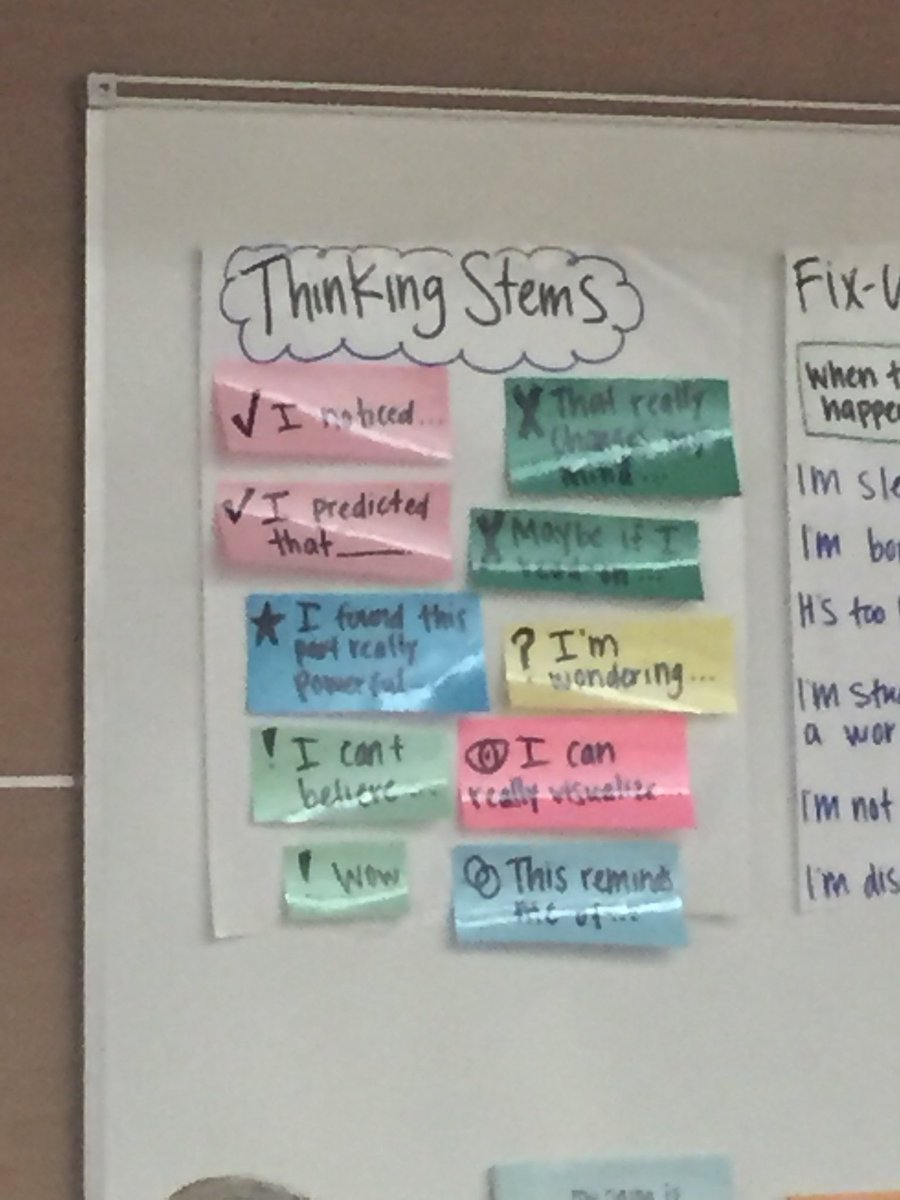 Thinking Stems
✓ I noticed...
✓ I predicted
that____
★ I found this
part really
powerful
! I can't
believe...
! Wow
X That really
changes my
mind...
Y Maybe if I
read on...
? I'm
wondering...
I can
really visualize
This reminds
me of...
Fix-U
When t
happe
Im sle
I'm bo
It's too
I'm stu
a wor
I'm not
I'm dis
my name is